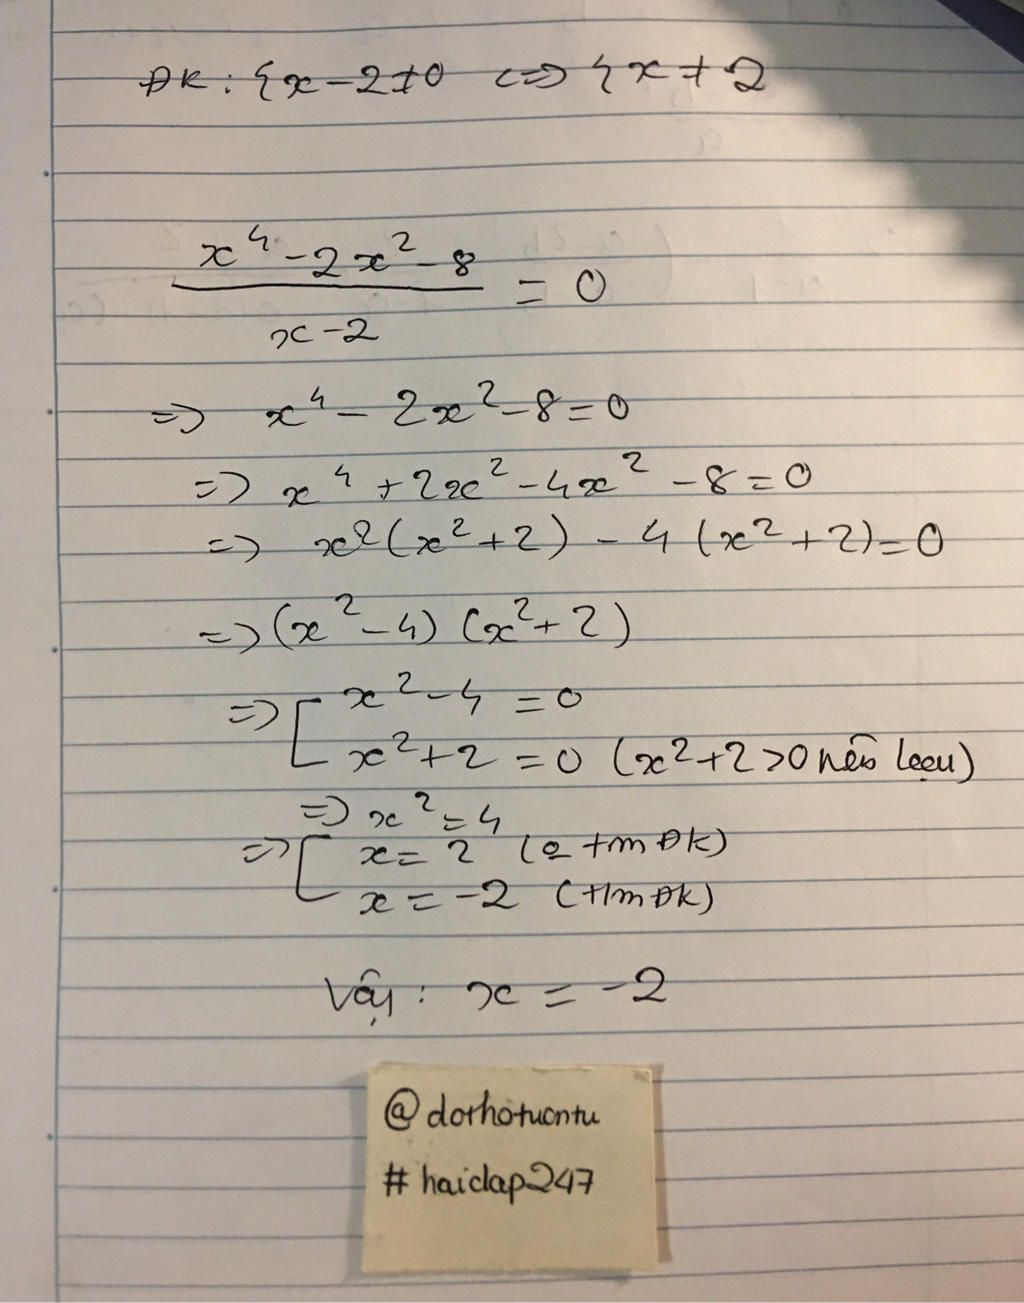 ĐK : {x - 2 ≠ 0 <=> {x ≠ 2
x⁴ - 2x² - 8
= 0
x - 2
=> x⁴ - 2x² - 8 = 0
=> x⁴ + 2x² - 4x² - 8 = 0
=> x²(x² + 2) - 4(x² + 2) = 0
=> (x² - 4)(x² + 2)
=> [ x² - 4 = 0
x² + 2 = 0 (x² + 2 > 0 nên loại)
=> x² = 4
=> [ x = 2 (0 tm ĐK)
x = -2 (tm ĐK)
Vậy : x = -2
@dorhotuontu
#haiclap247